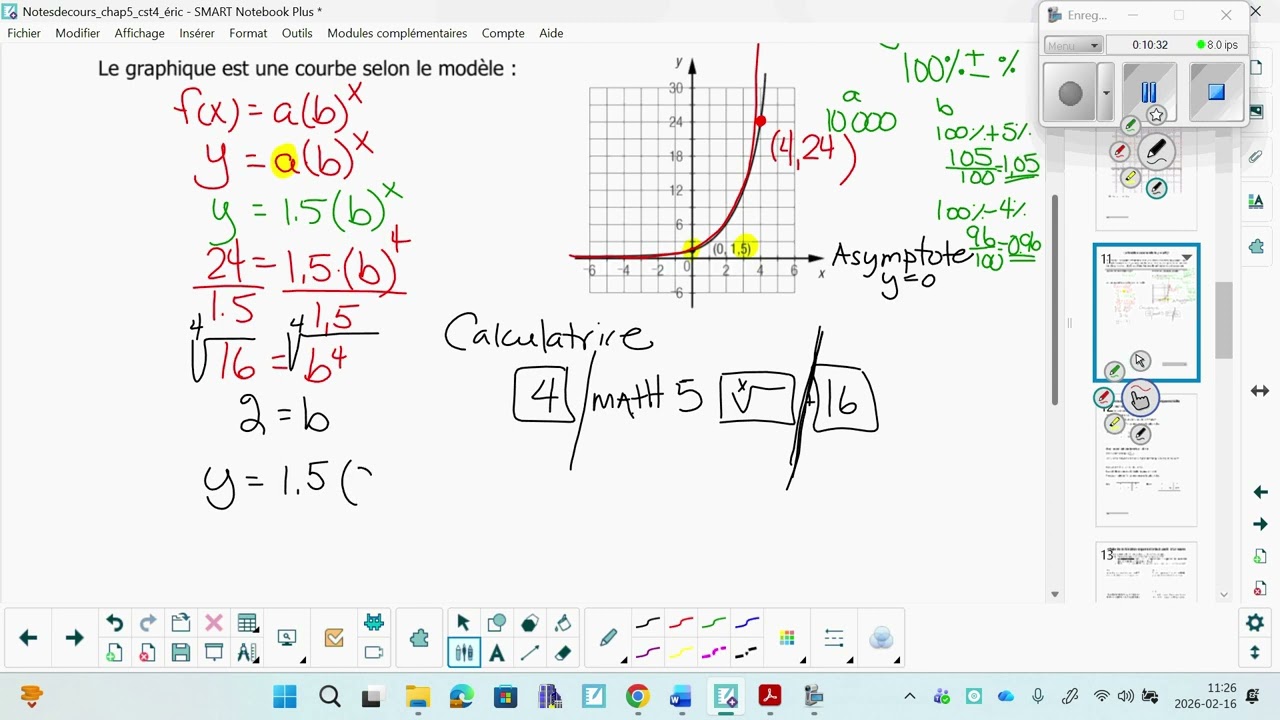 Notesdecours_chap5_cst4_éric - SMART Notebook Plus *
Fichier Modifier Affichage Insérer Format Outils Modules complémentaires Compte Aide
Enreg...
Menu 0:10:32 8.0 ips
Le graphique est une courbe selon le modèle :
f(x) = a(b)^x
y = a(b)^x
y = 1.5(b)^x
24 = 1.5·(b)^4
1.5 1,5
⁴√16 = ⁴√b^4
2 = b
y = 1.5 (
y
30
24
18
12
6
-6 -4 -2 0 2 4 6 x
-6
(0, 1,5)
(4,24)
Asymptote
y=0
100% ± %
a
10 000
b
100%+5%
105/100=1,05
100%-4%
96/100=0,96
Calculatrice
4 MATH 5 ˣ√ 16
11
12
13
11:26
2026-02-16